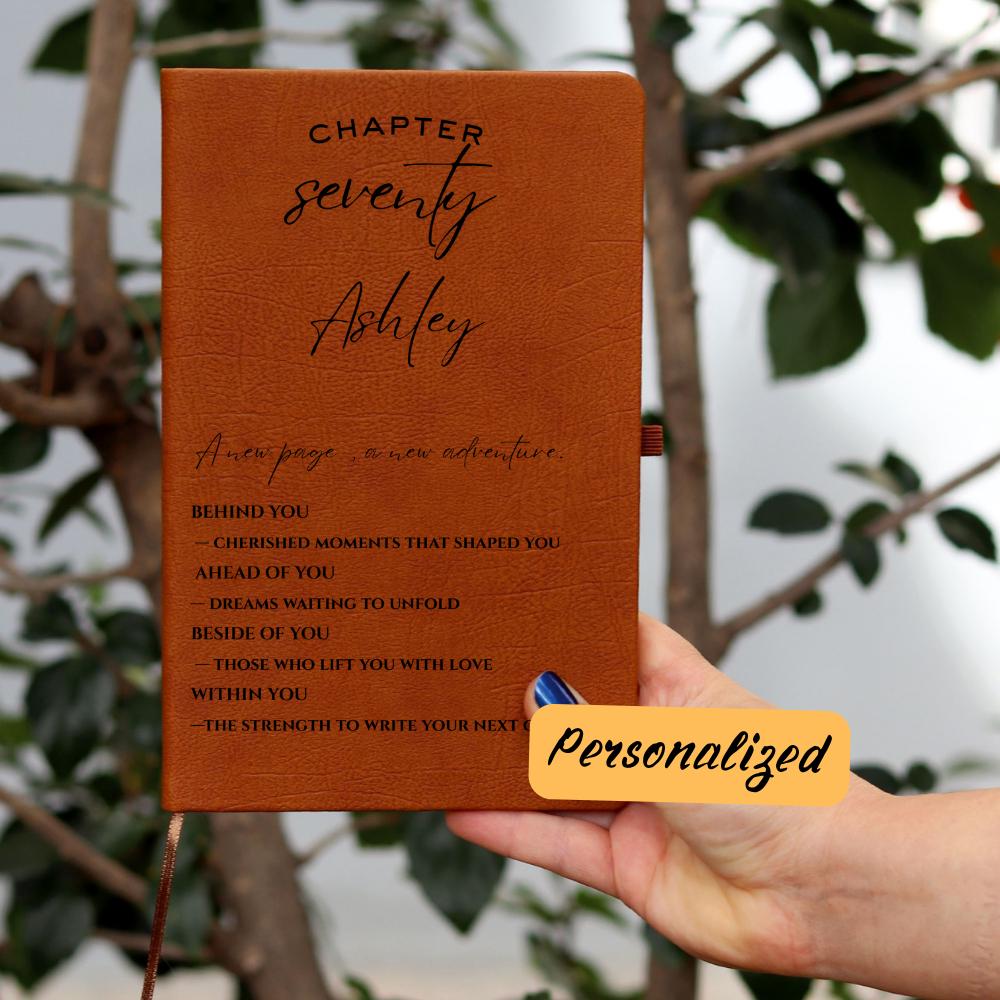 CHAPTER
seventy
Ashley
A new page , a new adventure.
BEHIND YOU
— CHERISHED MOMENTS THAT SHAPED YOU
AHEAD OF YOU
— DREAMS WAITING TO UNFOLD
BESIDE OF YOU
— THOSE WHO LIFT YOU WITH LOVE
WITHIN YOU
—THE STRENGTH TO WRITE YOUR NEXT
Personalized